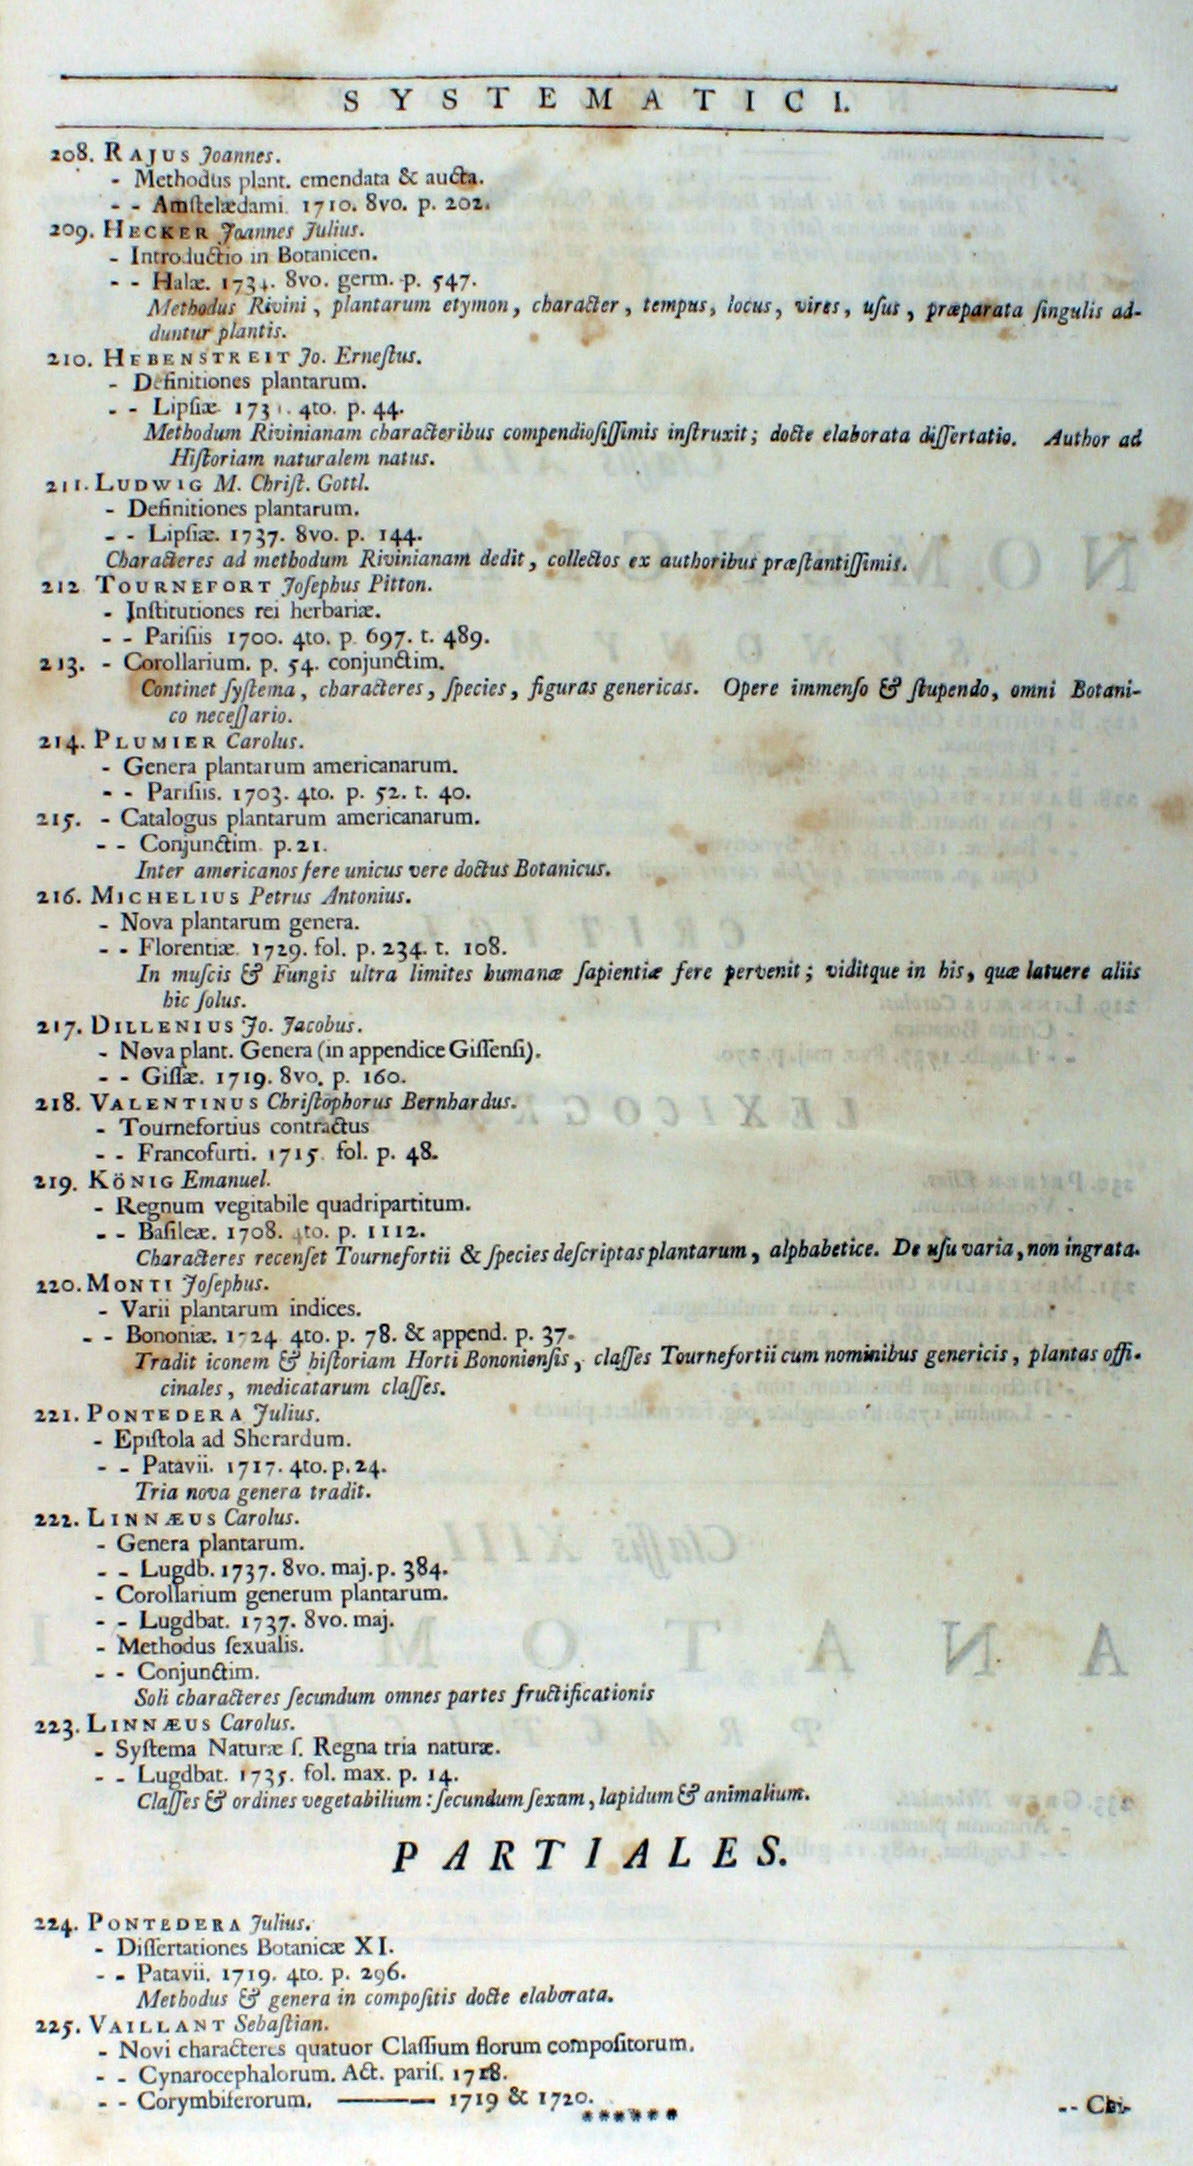 SYSTEMATICI.
208. RAJUS Joannes.
- Methodus plant. emendata & aucta.
- - Amstelædami 1710. 8vo. p. 202.
209. HECKER Joannes Julius.
- Introductio in Botanicen.
- - Halæ. 1734. 8vo. germ. p. 547.
Methodus Rivini, plantarum etymon, character, tempus, locus, vires, uſus, præparata ſingulis ad-
duntur plantis.
210. HEBENSTREIT Jo. Erneſtus.
- Definitiones plantarum.
- - Lipſiæ 173 . 4to. p. 44.
Methodum Rivinianam characteribus compendioſiſſimis inſtruxit; docte elaborata diſſertatio. Author ad
Hiſtoriam naturalem natus.
211. LUDWIG M. Chriſt. Gottl.
- Definitiones plantarum.
- - Lipſiæ. 1737. 8vo. p. 144.
Characteres ad methodum Rivinianam dedit, collectos ex authoribus præſtantiſſimis.
212 TOURNEFORT Joſephus Pitton.
- Inſtitutiones rei herbariæ.
- - Pariſiis 1700. 4to. p 697. t. 489.
213. - Corollarium. p. 54. conjunctim.
Continet ſyſtema, characteres, ſpecies, figuras genericas. Opere immenſo & ſtupendo, omni Botani-
co neceſſario.
214. PLUMIER Carolus.
- Genera plantarum americanarum.
- - Pariſiis. 1703. 4to. p. 52. t. 40.
215. - Catalogus plantarum americanarum.
- - Conjunctim p. 21.
Inter americanos fere unicus vere doctus Botanicus.
216. MICHELIUS Petrus Antonius.
- Nova plantarum genera.
- - Florentiæ 1729. fol. p. 234. t. 108.
In muſcis & Fungis ultra limites humanæ ſapientiæ fere pervenit; viditque in his, quæ latuere aliis
hic ſolus.
217. DILLENIUS Jo. Jacobus.
- Nova plant. Genera (in appendice Giſſenſi).
- - Giſſæ. 1719. 8vo. p. 160.
218. VALENTINUS Chriſtophorus Bernhardus.
- Tournefortius contractus
- - Francofurti. 1715 fol. p. 48.
219. KÖNIG Emanuel.
- Regnum vegitabile quadripartitum.
- - Baſileæ. 1708. 4to. p. 1112.
Characteres recenſet Tournefortii & ſpecies deſcriptas plantarum, alphabetice. De uſu varia, non ingrata.
220. MONTI Joſephus.
- Varii plantarum indices.
- - Bononiæ. 1724 4to. p. 78. & append. p. 37.
Tradit iconem & hiſtoriam Horti Bononienſis, claſſes Tournefortii cum nominibus genericis, plantas offi-
cinales, medicatarum claſſes.
221. PONTEDERA Julius.
- Epiſtola ad Sherardum.
- - Patavii. 1717. 4to. p. 24.
Tria nova genera tradit.
222. LINNÆUS Carolus.
- Genera plantarum.
- - Lugdb. 1737. 8vo. maj. p. 384.
- Corollarium generum plantarum.
- - Lugdbat. 1737. 8vo. maj.
- Methodus ſexualis.
- - Conjunctim.
Soli characteres ſecundum omnes partes fructificationis
223. LINNÆUS Carolus.
- Syſtema Naturæ ſ. Regna tria naturæ.
- - Lugdbat. 1735. fol. max. p. 14.
Claſſes & ordines vegetabilium: ſecundum ſexum, lapidum & animalium.
PARTIALES.
224. PONTEDERA Julius.
- Diſſertationes Botanicæ XI.
- - Patavii. 1719. 4to. p. 296.
Methodus & genera in compoſitis docte elaborata.
225. VAILLANT Sebaſtian.
- Novi characteres quatuor Claſſium florum compoſitorum.
- - Cynarocephalorum. Act. pariſ. 1718.
- - Corymbiferorum. ——— 1719 & 1720.
******
-- Chi-